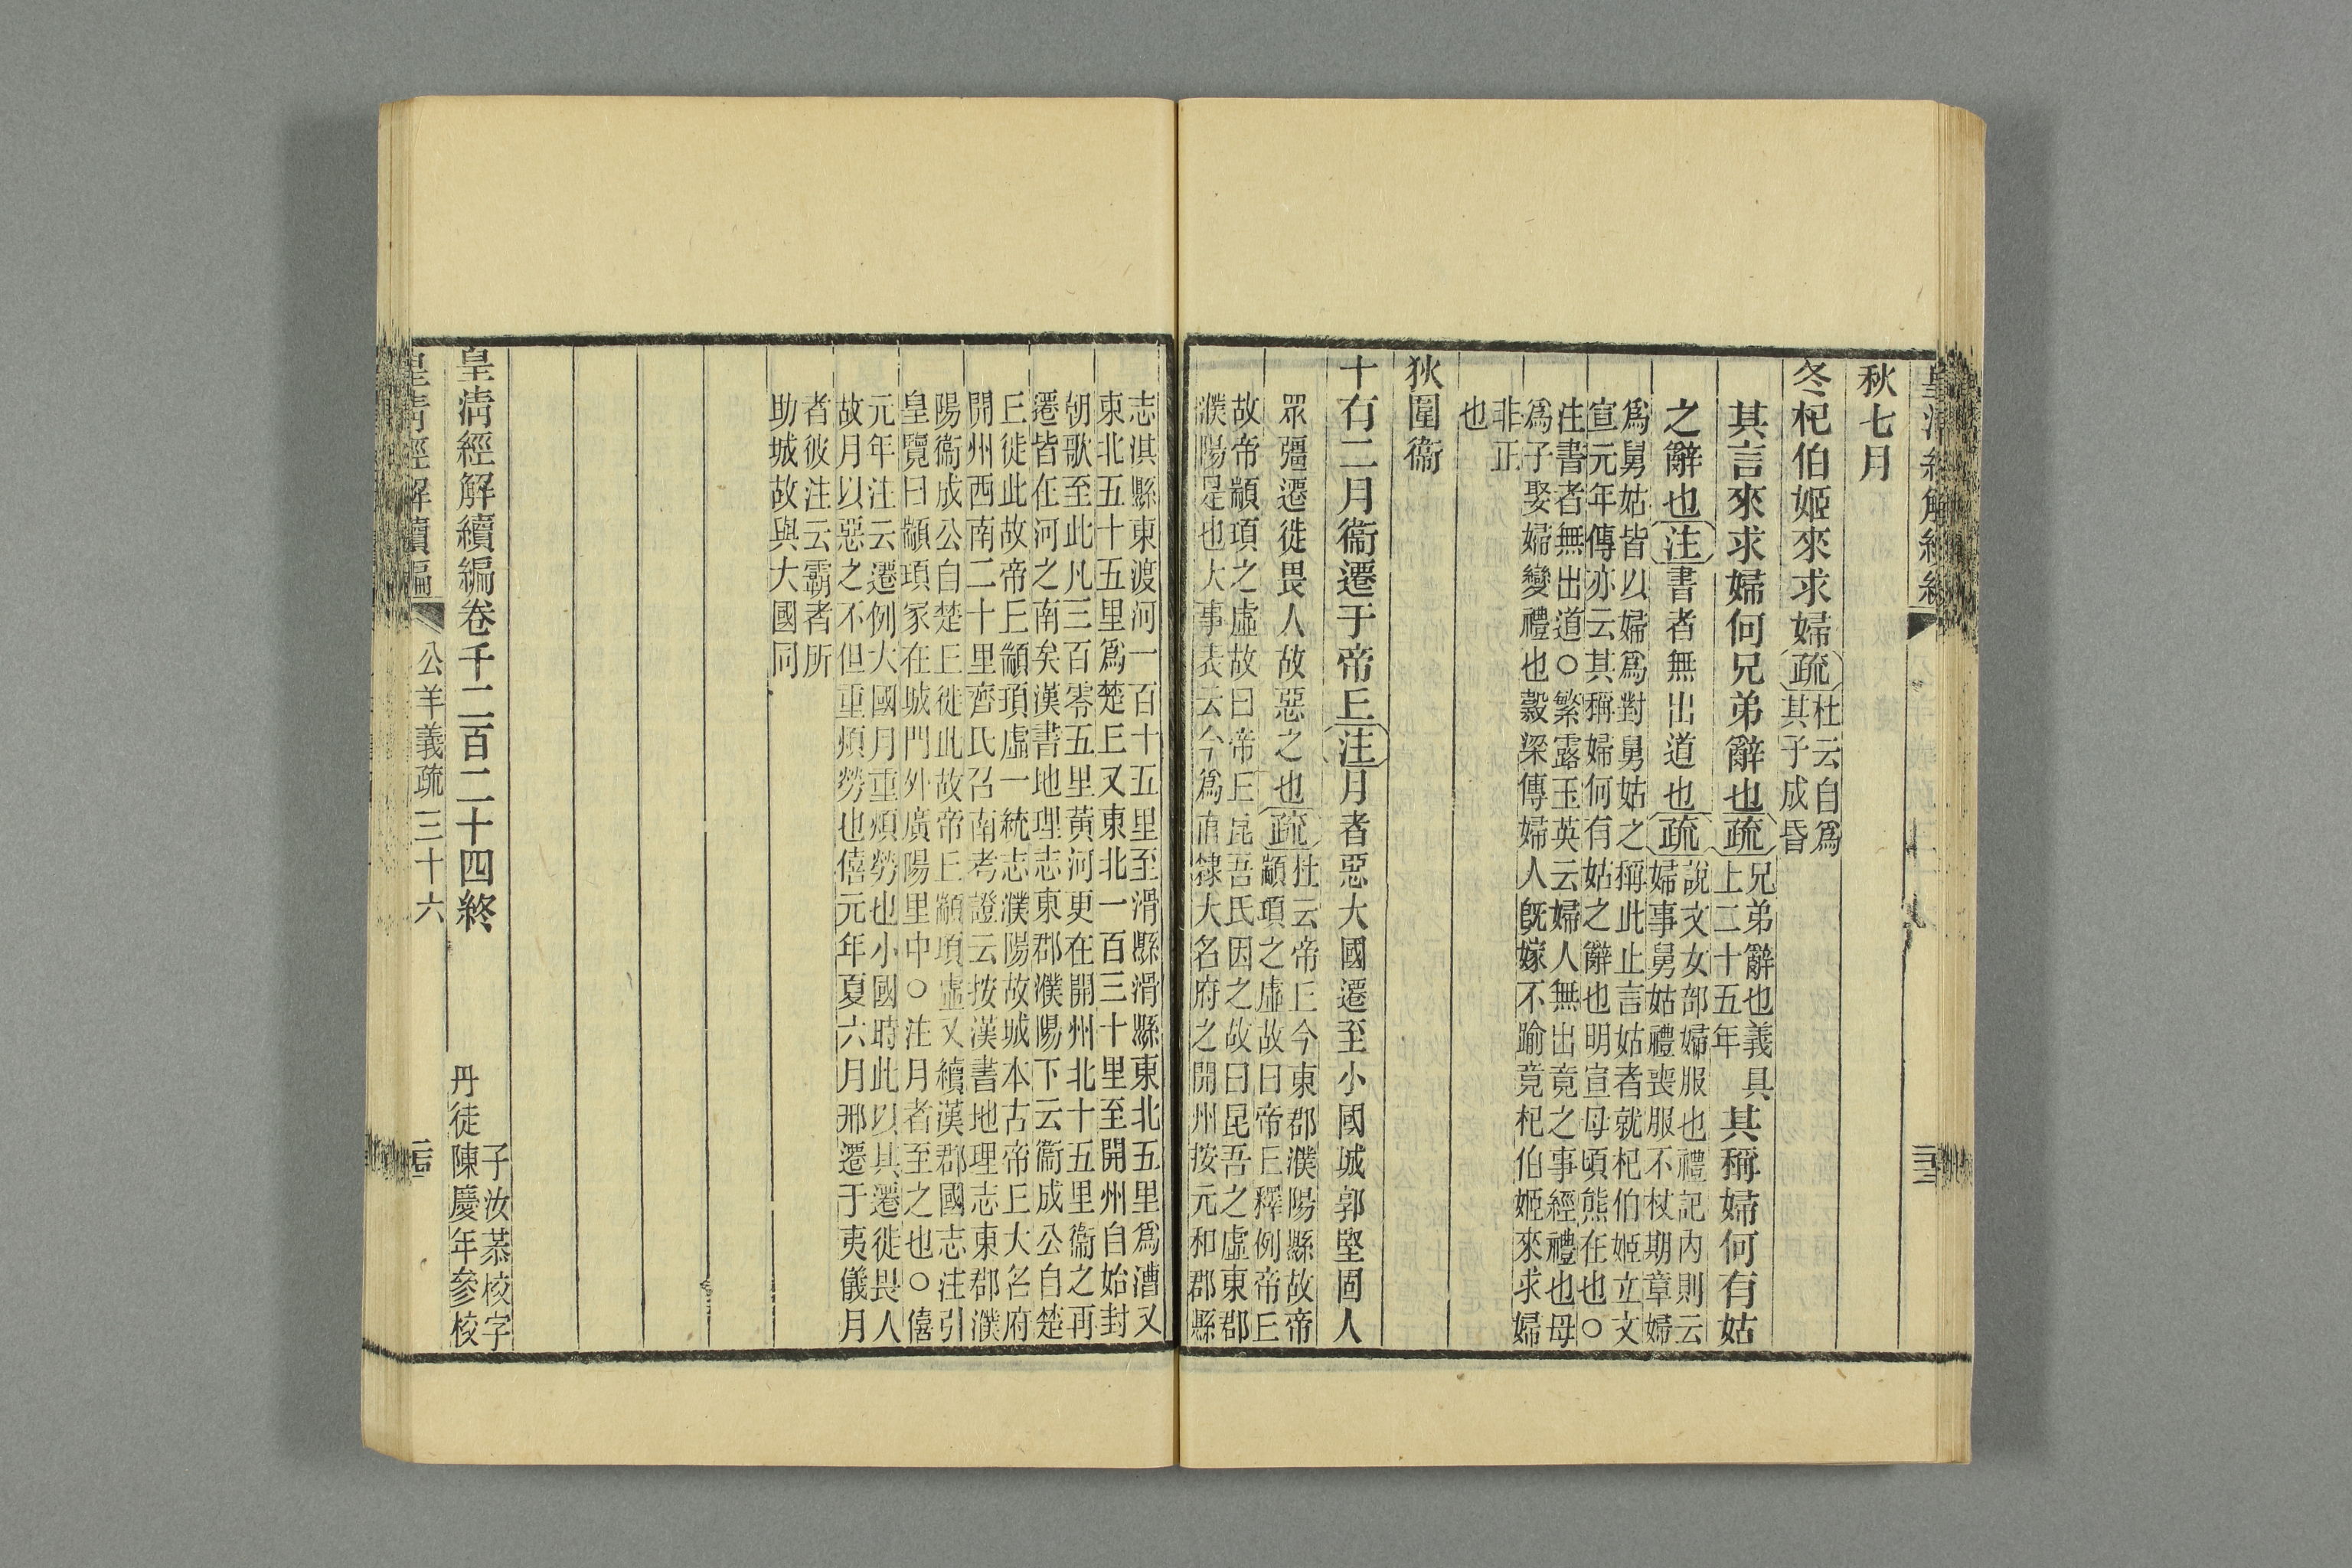 秋七月
冬杞伯姬來求婦疏杜云自爲
其子成昏
其言來求婦何兄弟辭也疏兄弟辭也義具
上二十五年其稱婦何有姑
之辭也注書者無出道也疏說文女部婦服也禮記內則云
婦事舅姑禮喪服不杖期章婦
爲舅姑皆以婦爲對舅姑之稱此止言姑者就杞伯姬立文
宣元年傳亦云其稱婦何有姑之辭也明宣母頃熊在也○
注書者無出道○繁露玉英云婦人無出竟之事經禮也母
爲子娶婦變禮也穀梁傳婦人旣嫁不踰竟杞伯姬來求婦
非正
也
狄圍衞
十有二月衞遷于帝丘注月者惡大國遷至小國城郭堅固人
眾彊遷徙畏人故惡之也疏杜云帝丘今東郡濮陽縣故帝
顓頊之虛故曰帝丘釋例帝丘
故帝顓頊之虛故曰帝丘昆吾氏因之故曰昆吾之虛東郡
濮陽是也大事表云今爲直隸大名府之開州按元和郡縣
志淇縣東渡河一百十五里至滑縣滑縣東北五里爲漕又
東北五十五里爲楚丘又東北一百三十里至開州自始封
朝歌至此凡三百零五里黃河更在開州北十五里衞之再
遷皆在河之南矣漢書地理志東郡濮陽下云衞成公自楚
丘徙此故帝丘顓頊虛一統志濮陽故城本古帝丘大名府
開州西南二十里齊氏召南考證云按漢書地理志東郡濮
陽衞成公自楚丘徙此故帝丘顓頊虛又續漢郡國志注引
皇覽曰顓頊冢在城門外廣陽里中○注月者至之也○僖
元年注云遷例大國月重煩勞也小國時此以其遷徙畏人
故月以惡之不但重煩勞也僖元年夏六月邢遷于夷儀月
者彼注云霸者所
助城故與大國同
皇清經解續編卷千二百二十四終
子汝恭校字
丹徒陳慶年參校
皇清經解續編
公羊義疏三十六